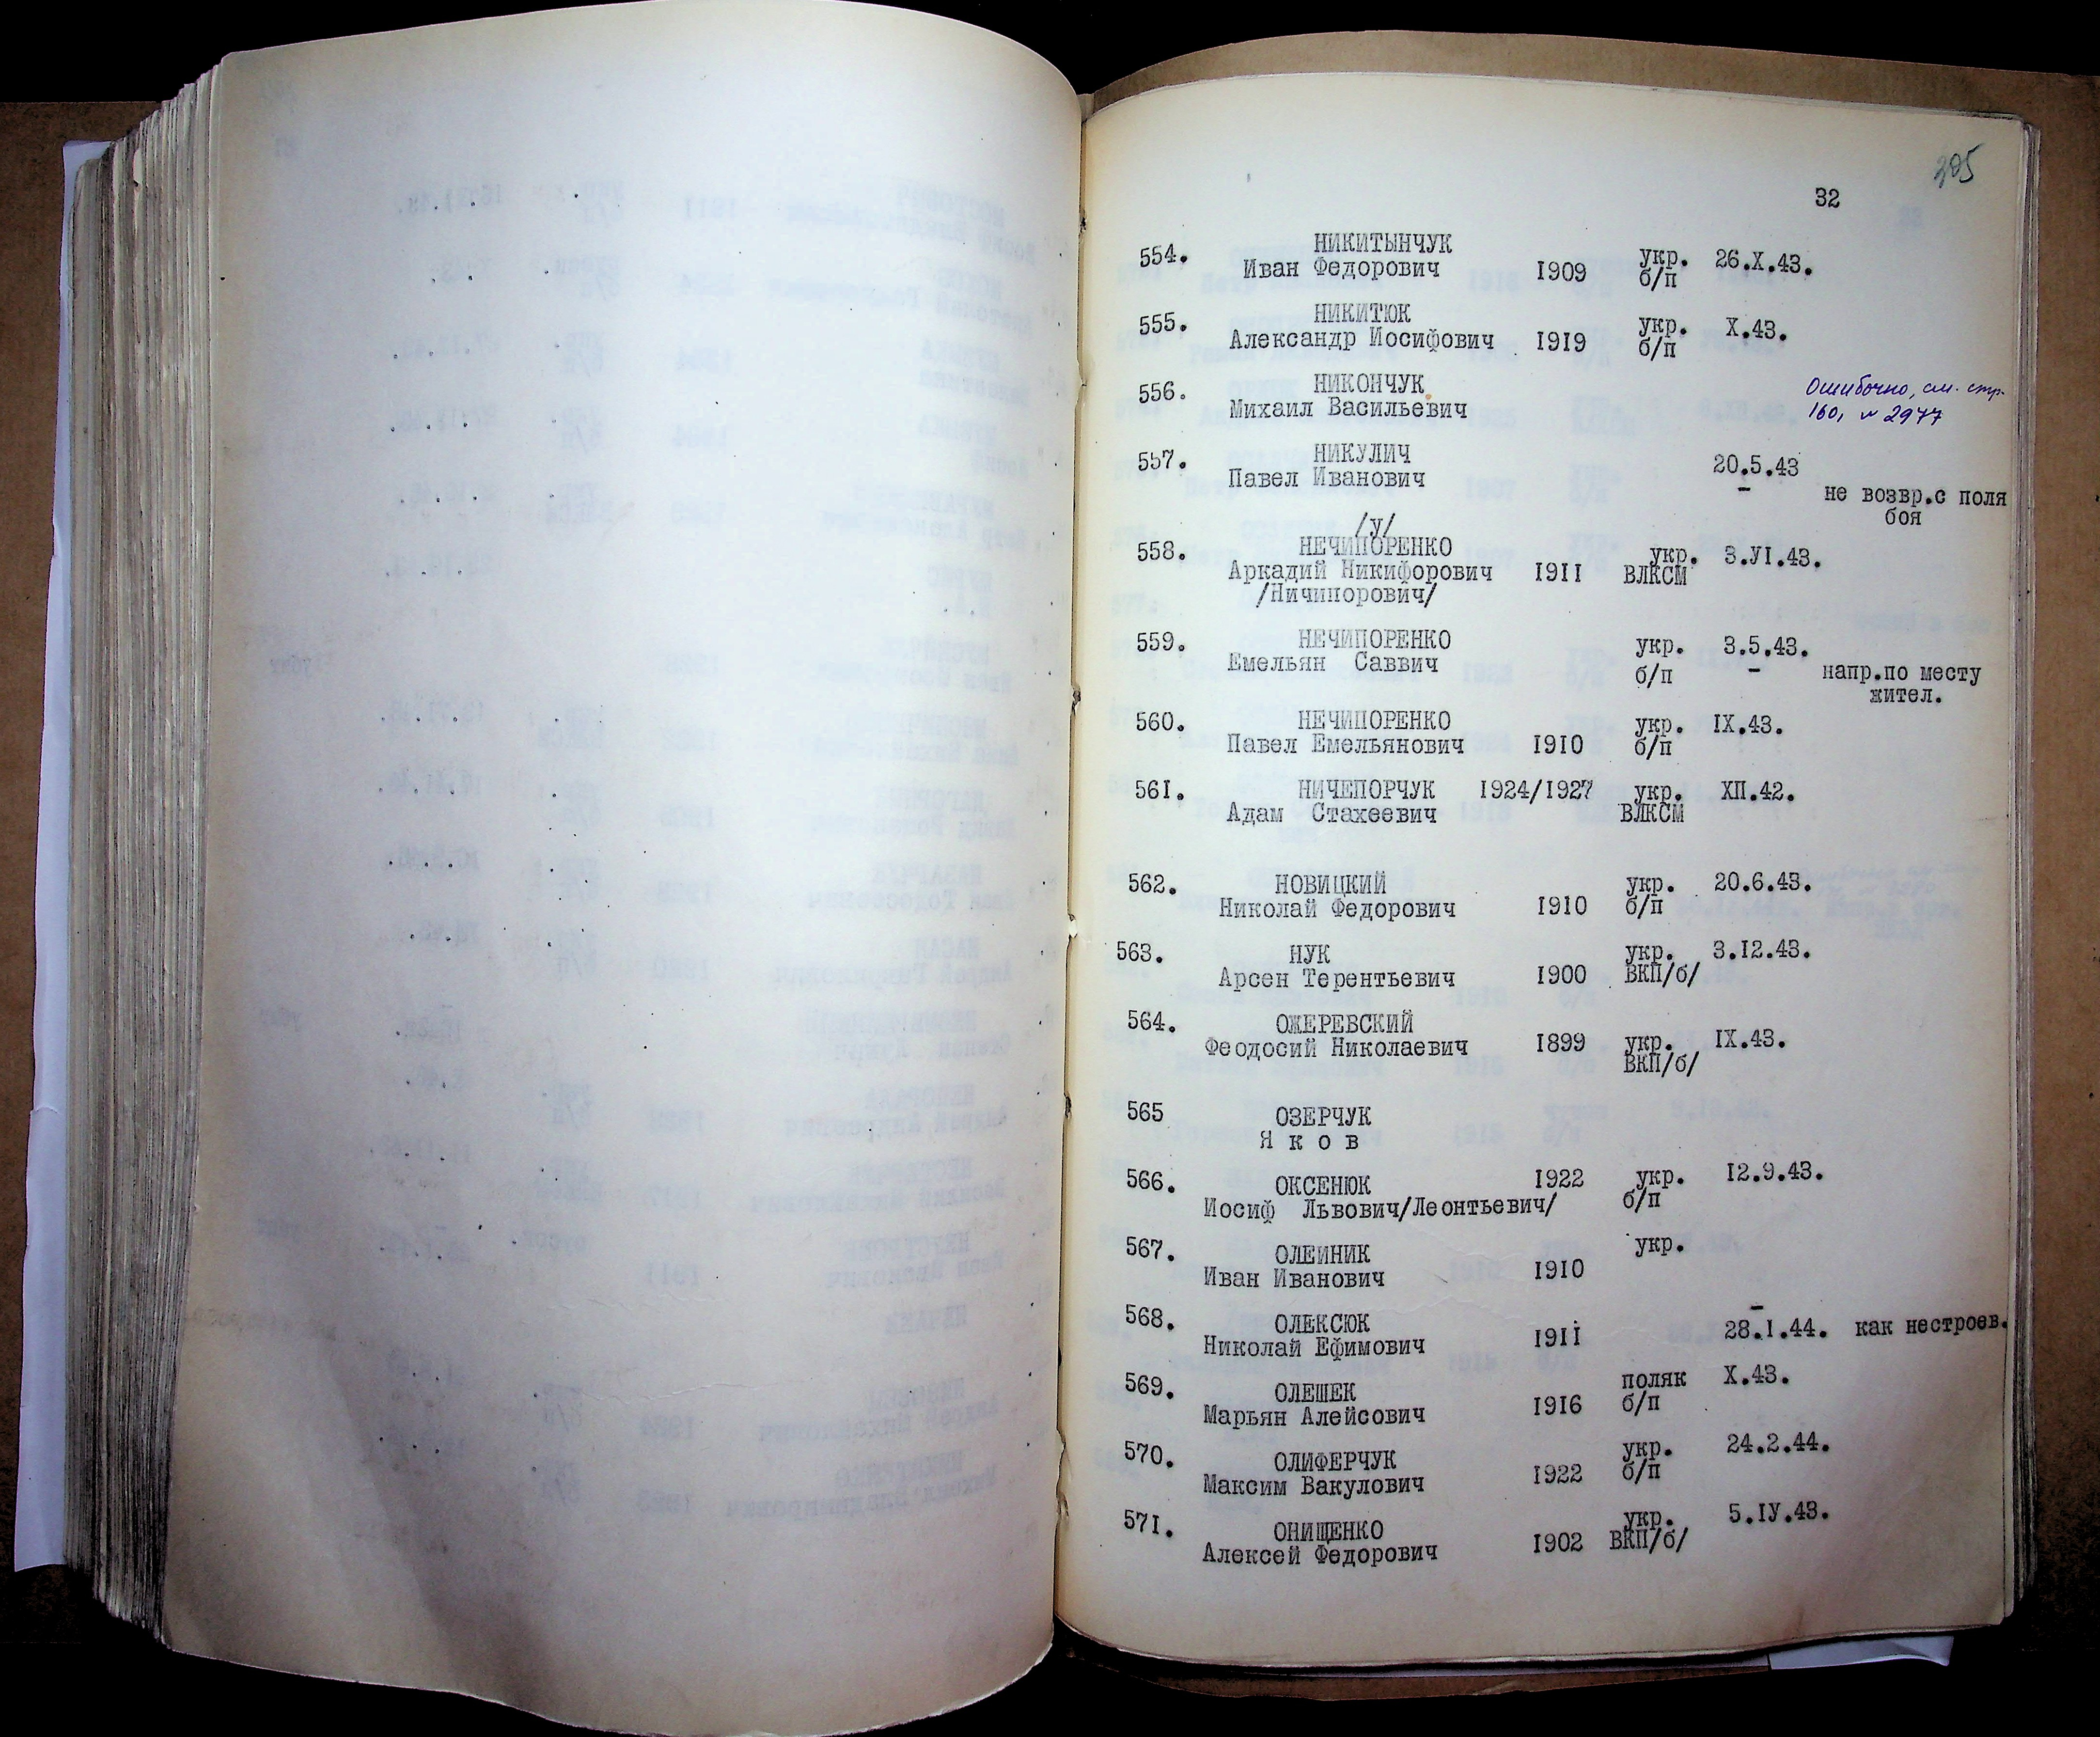 205
32
554. НИКИТЫНЧУК
Иван Федорович 1909 укр. 26.X.43.
б/п
555. НИКИТЮК
Александр Иосифович 1919 укр. X.43.
б/п
556. НИКОНЧУК
Михаил Васильевич
Ошибочно, см. стр.
160, № 2977
557. НИКУЛИЧ
Павел Иванович 20.5.43
– не возвр.с поля
боя
/у/
558. НЕЧИПОРЕНКО
Аркадий Никифорович 1911 укр. 3.УI.43.
ВЛКСМ
/Ничипорович/
559. НЕЧИПОРЕНКО
Емельян Саввич укр. 3.5.43.
б/п – напр.по месту
жител.
560. НЕЧИПОРЕНКО
Павел Емельянович 1910 укр. IX.43.
б/п
561. НИЧЕПОРЧУК 1924/1927 укр. XП.42.
Адам Стахеевич ВЛКСМ
562. НОВИЦКИЙ укр. 20.6.43.
Николай Федорович 1910 б/п
563. НУК укр. 3.12.43.
Арсен Терентьевич 1900 ВКП/б/
564. ОЖЕРЕВСКИЙ
Феодосий Николаевич 1899 укр. IX.43.
ВКП/б/
565 ОЗЕРЧУК
Я к о в
566. ОКСЕНЮК 1922 укр. 12.9.43.
Иосиф Львович/Леонтьевич/ б/п
567. ОЛЕЙНИК укр.
Иван Иванович 1910
568. ОЛЕКСЮК –
Николай Ефимович 1911 28.I.44. как нестроев.
569. ОЛЕШЕК поляк X.43.
Марьян Алейсович 1916 б/п
570. ОЛИФЕРЧУК укр. 24.2.44.
Максим Вакулович 1922 б/п
571. ОНИЩЕНКО укр. 5.IУ.43.
Алексей Федорович 1902 ВКП/б/